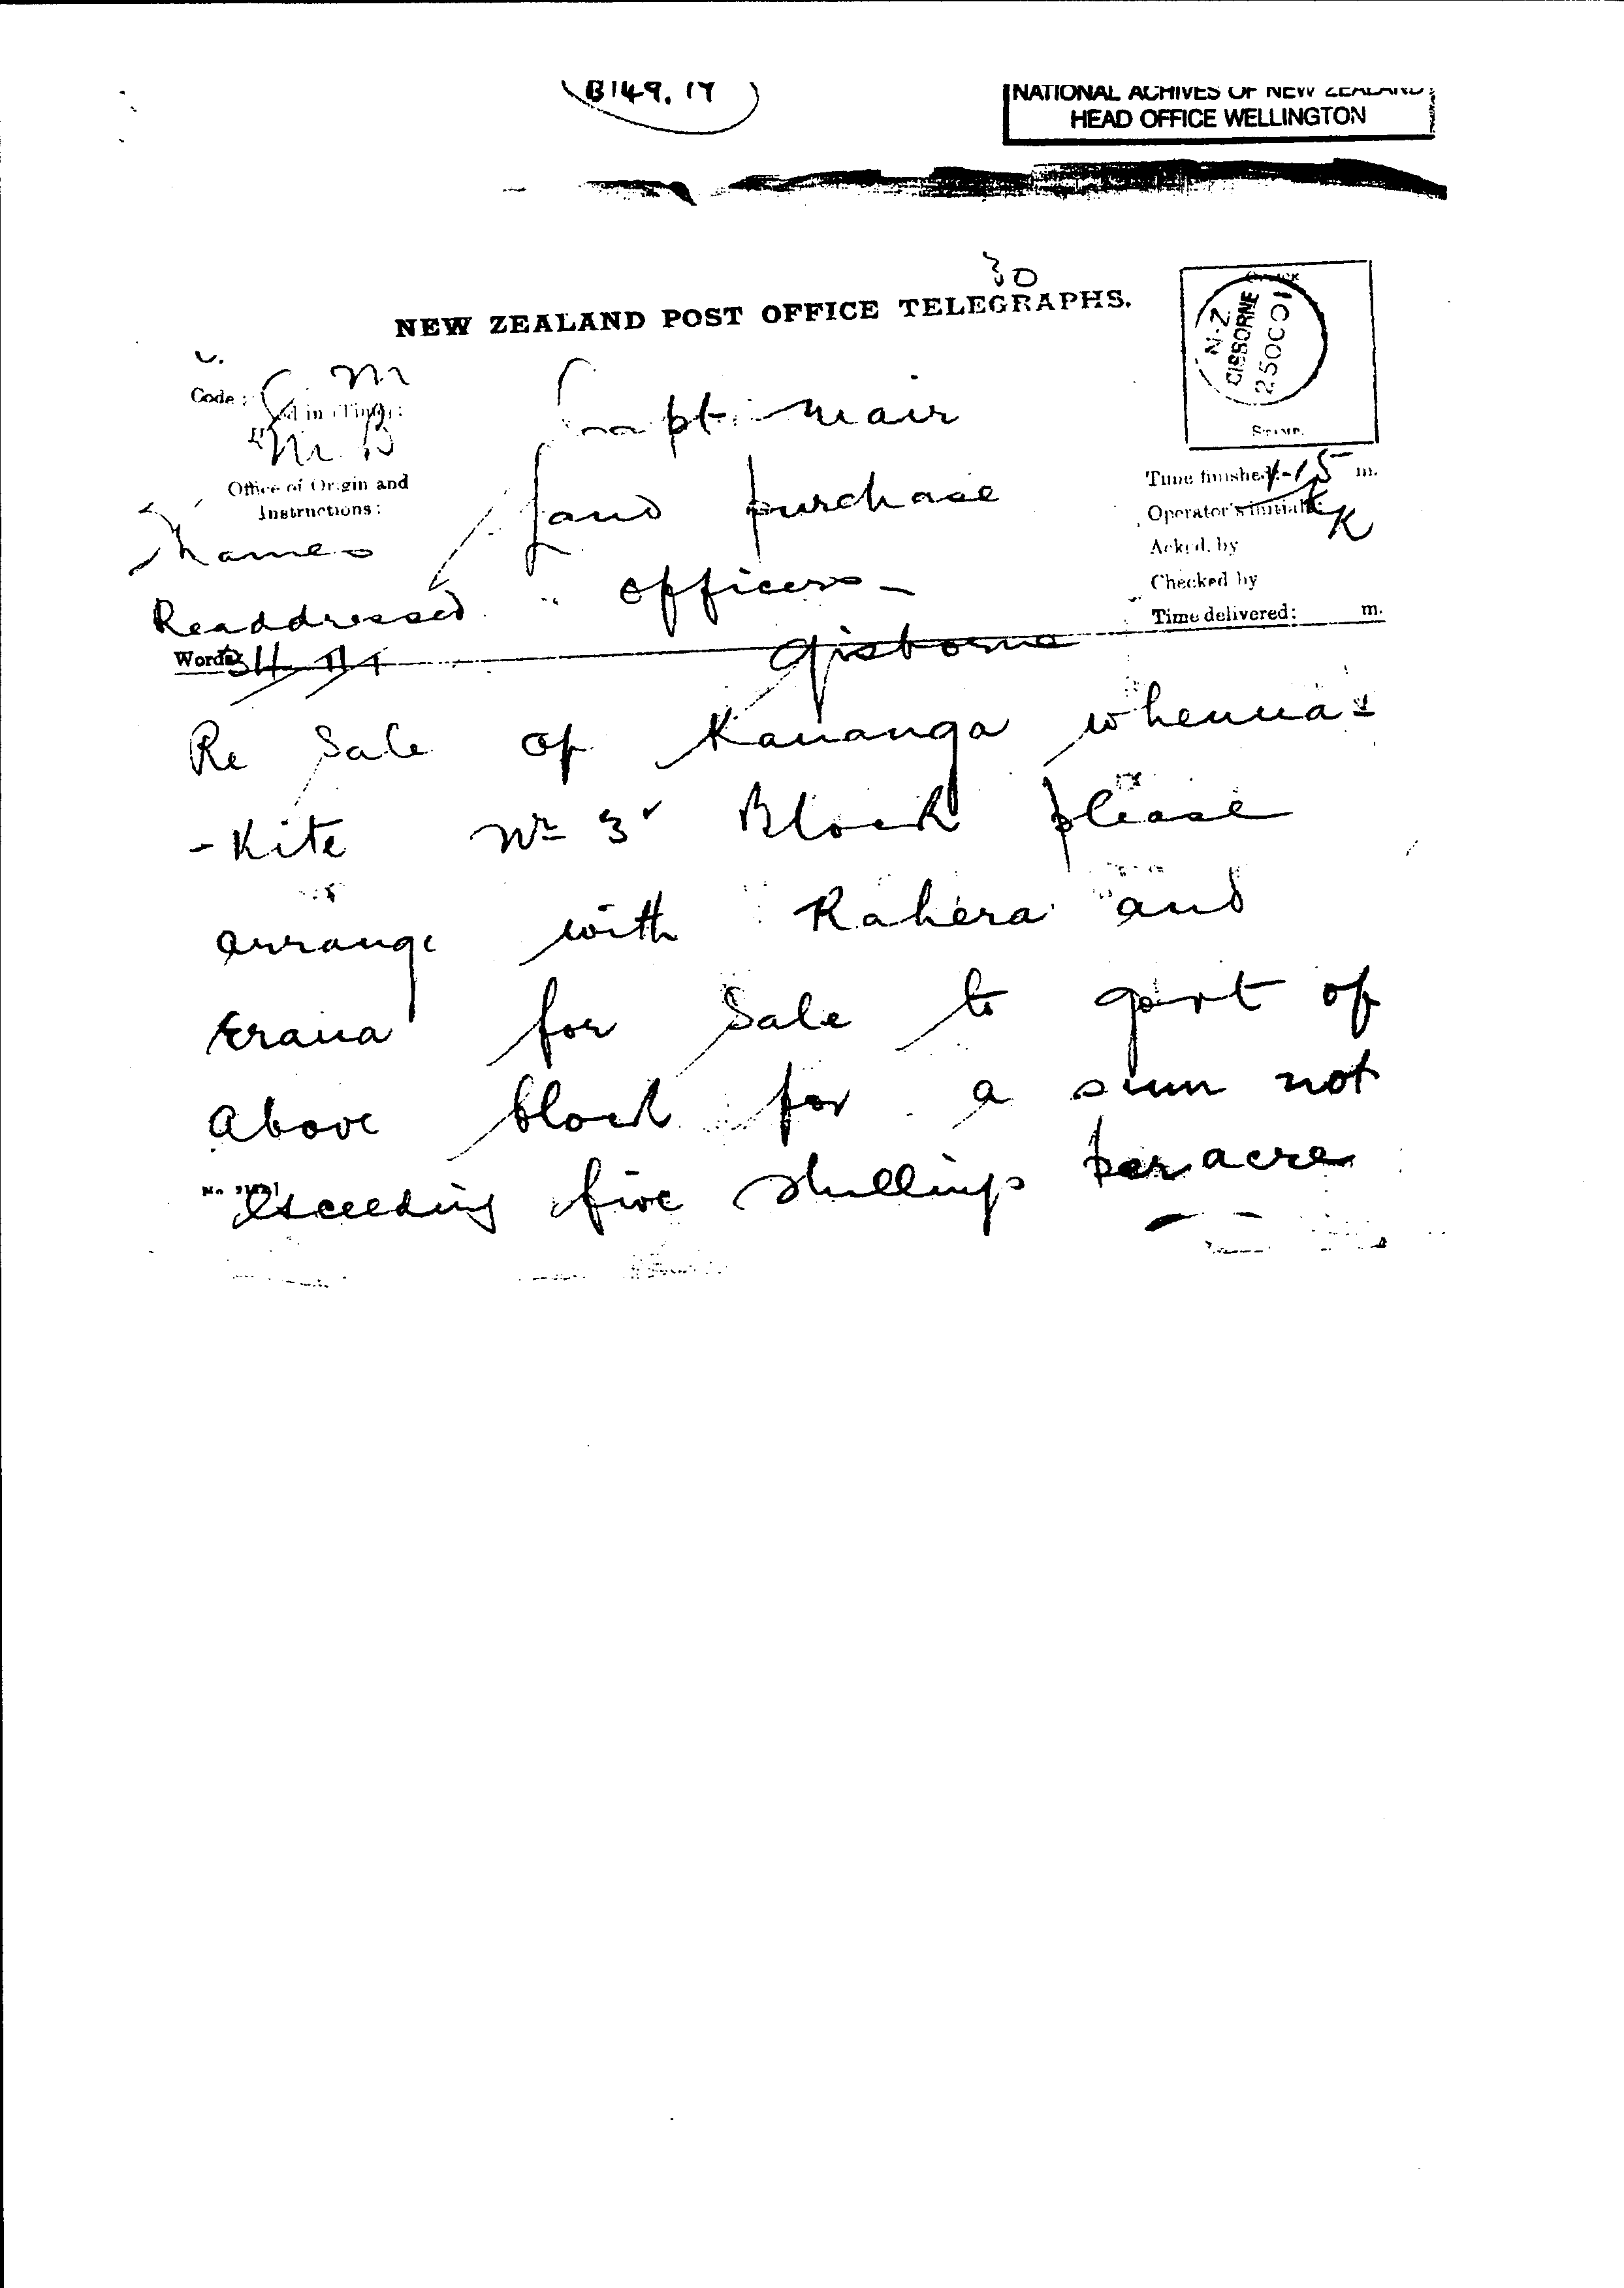 B149.17
NATIONAL ACHIVES OF NEW ZEALAND
HEAD OFFICE WELLINGTON
30
NEW ZEALAND POST OFFICE TELEGRAPHS.
N.Z.
GISBORNE
25OC01
Code:
Office of Origin and
Instructions:
Thames
Readdressed
Capt. Mair
Land purchase
officers -
Gisborne
Time finished: 1-15 m.
Operator's initials: K
Ackd. by
Checked by
Time delivered: m.
Words:
Re Sale of Kauanga whenua=
-Kite No 3 Block please
arrange with Rahera and
Erana for Sale to govt of
above block for a sum not
exceeding five shillings per acre